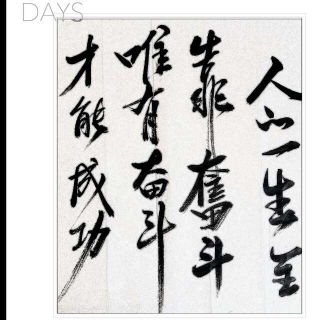 DAYS
人的一生全
靠奮斗
唯有奋斗
才能成功